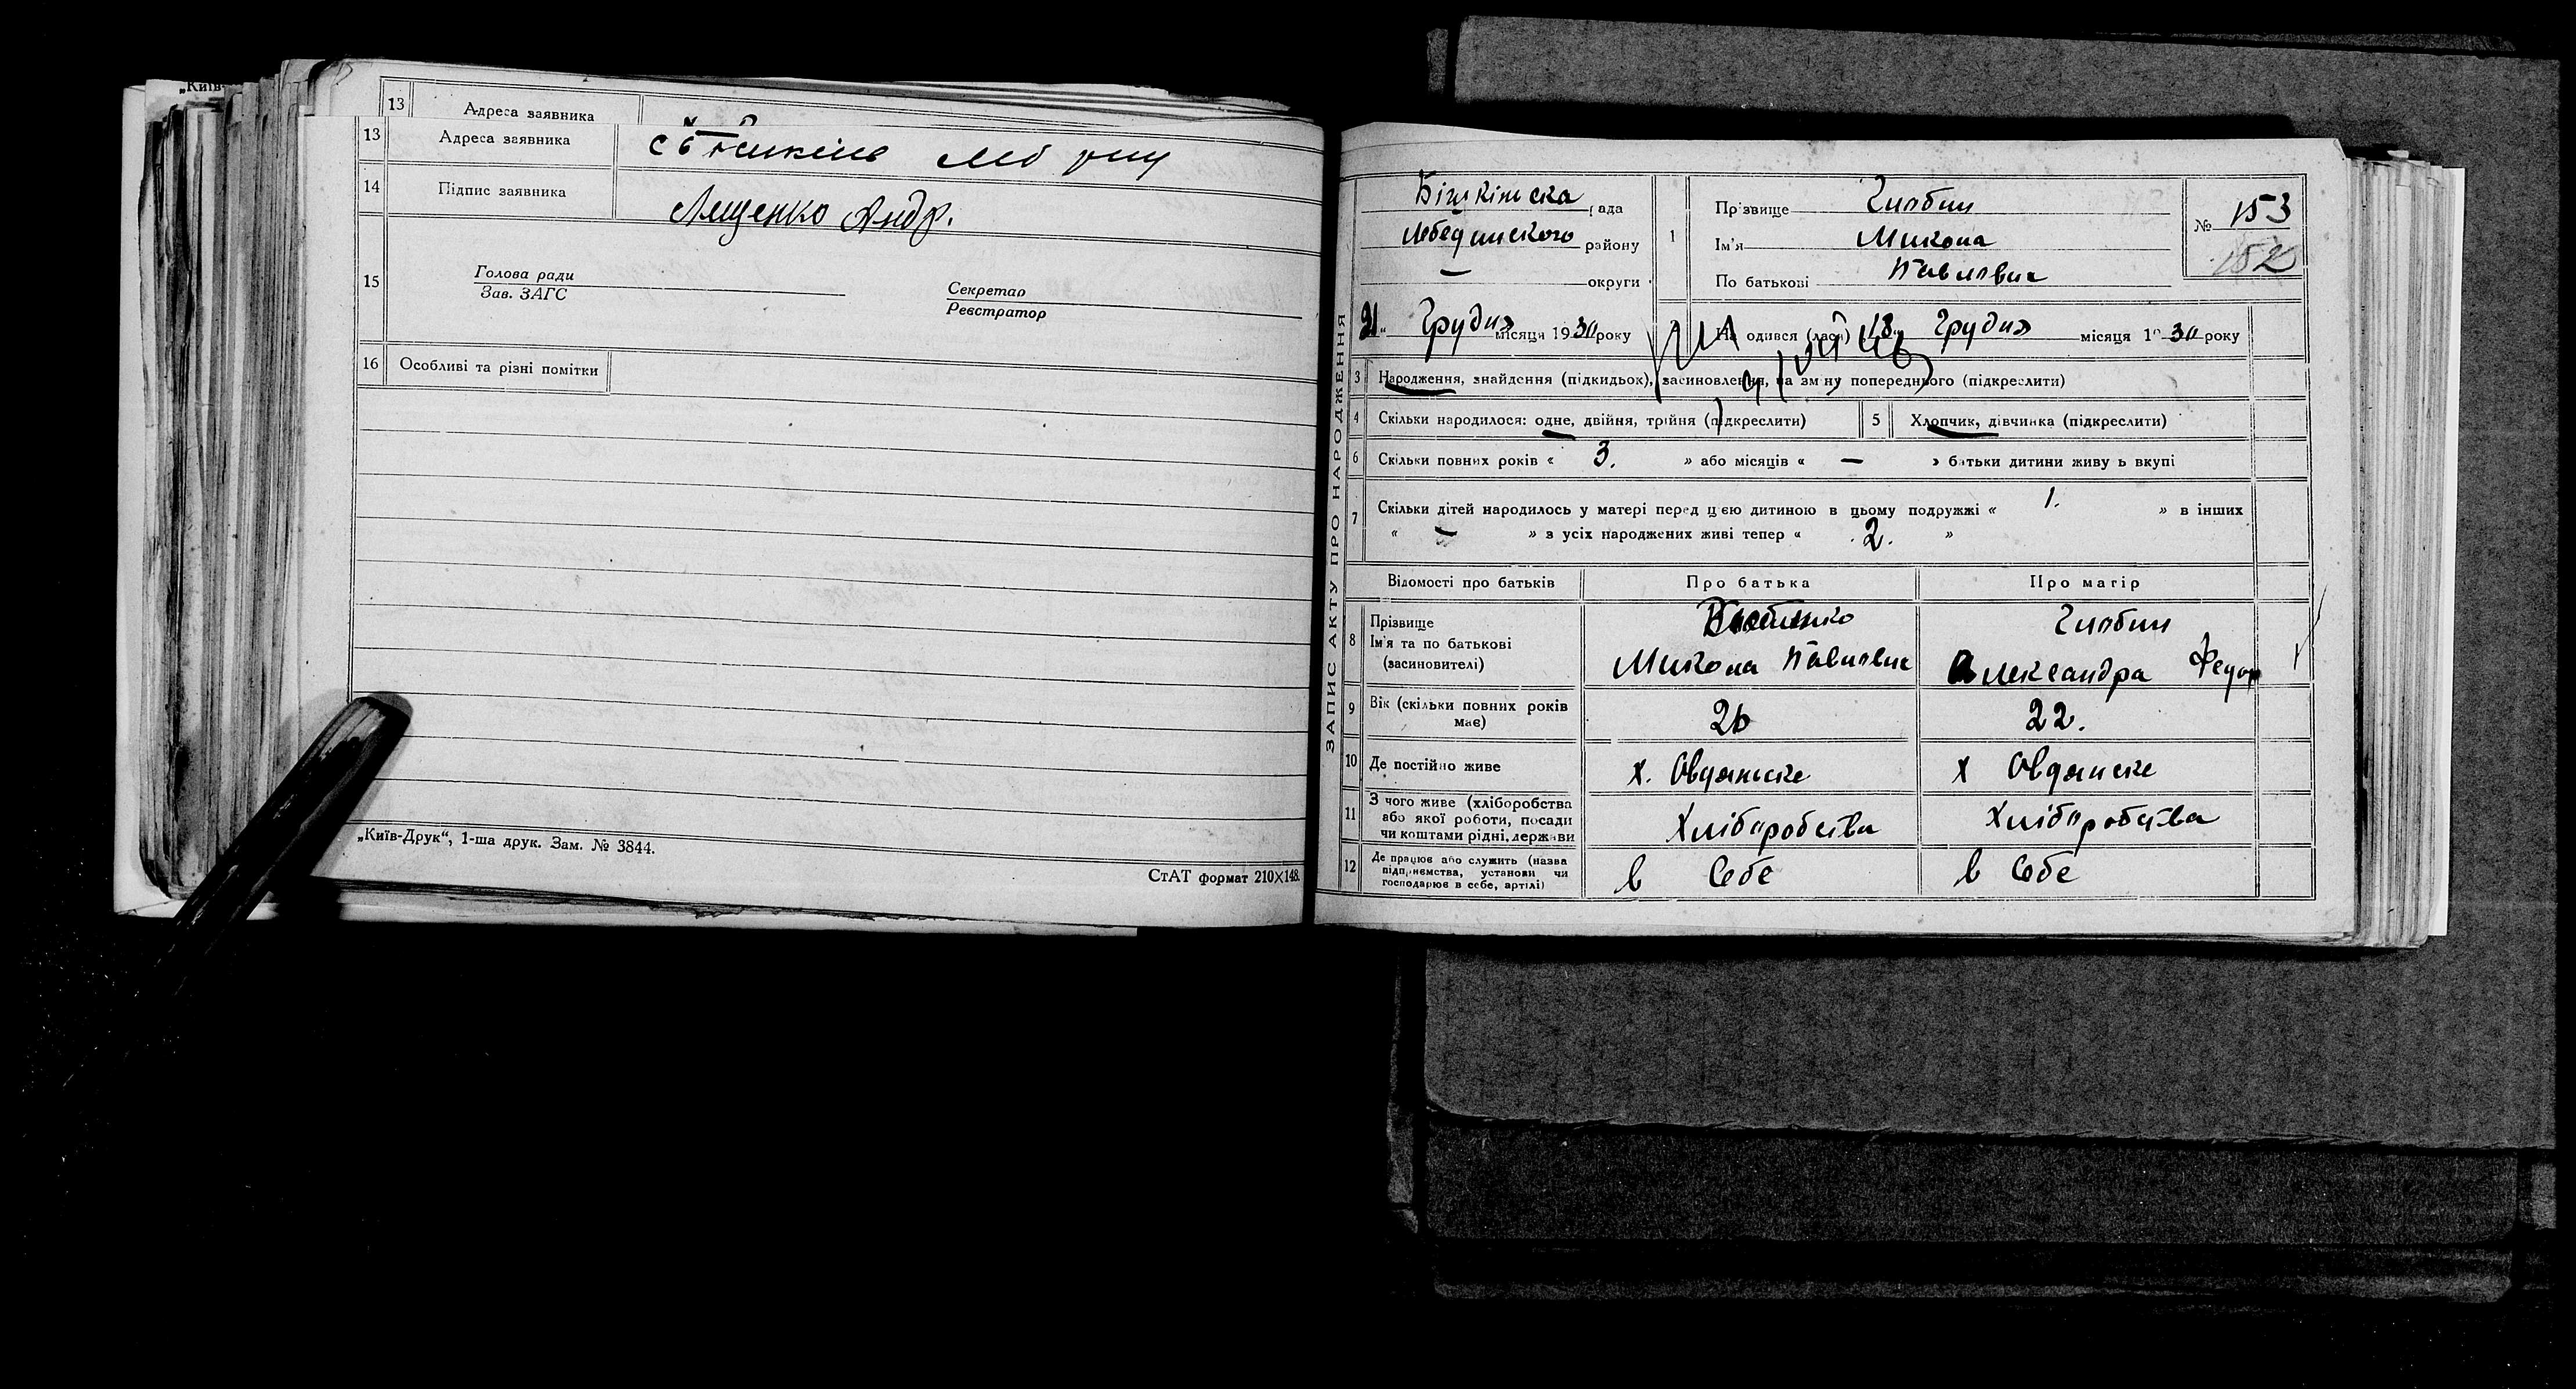 „Київ-
13 Адреса заявника
13 Адреса заявника с Бішкінь Леб
14 Підпис заявника Лещенко Андр.
15 Голова ради
Зав. ЗАГС
Секретар
Реєстратор
16 Особливі та різні помітки
„Київ-Друк“, 1-ша друк. Зам. № 3844.
СтАТ формат 210×148.
ЗАПИС АКТУ ПРО НАРОДЖЕННЯ
Бішкінська рада
Лебединского району
— округи
21 Грудня місяця 1930 року
1 Прізвище
Ім'я Микола
По батькові Павлович
№ 153
152
Народився (лась) 18 Грудня місяця 1930 року
3 Народження, знайдення (підкидьок), засиновлення, на зміну попереднього (підкреслити)
4 Скільки народилося: одне, двійня, трійня (підкреслити)
5 Хлопчик, дівчинка (підкреслити)
6 Скільки повних років « 3. » або місяців « — » батьки дитини живуть вкупі
7 Скільки дітей народилось у матері перед цією дитиною в цьому подружжі « 1. » в інших
« — » з усіх народжених живі тепер « 2. »
Відомості про батьків Про батька Про матір
8 Прізвище
Ім'я та по батькові Микола Павлович Александра Федор
(засиновителі)
9 Вік (скільки повних років має) 26 22.
10 Де постійно живе х. Овдянське х Овдянске
11 З чого живе (хліборобства
або якої роботи, посади Хліборобства Хліборобства
чи коштами рідні, держави
12 Де працює або служить (назва
підприємства, установи чи в Себе в Себе
господарює в себе, артілі)